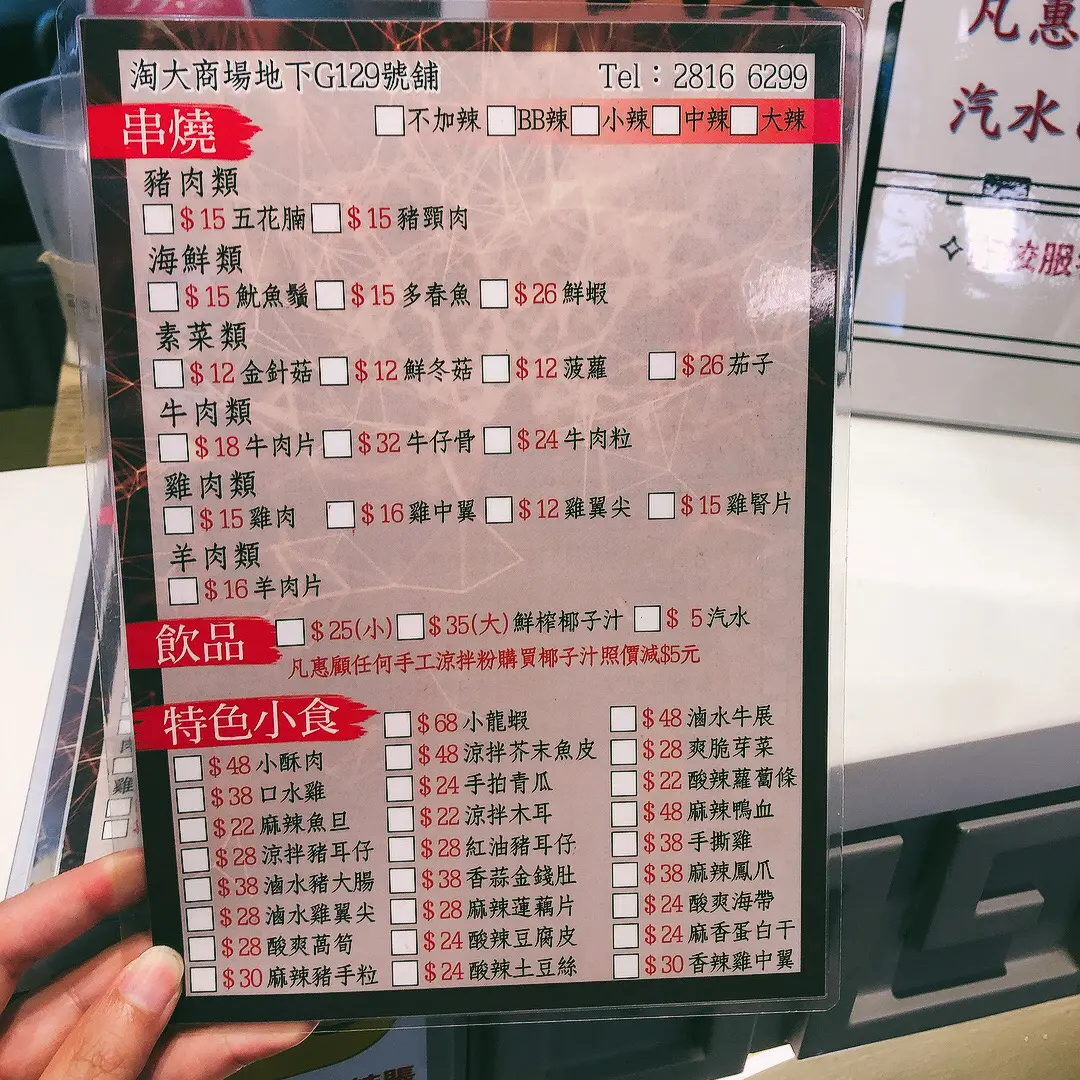 淘大商場地下G129號舖 Tel：2816 6299
串燒 不加辣 BB辣 小辣 中辣 大辣
豬肉類
$15 五花腩 $15 豬頸肉
海鮮類
$15 魷魚鬚 $15 多春魚 $26 鮮蝦
素菜類
$12 金針菇 $12 鮮冬菇 $12 菠蘿 $26 茄子
牛肉類
$18 牛肉片 $32 牛仔骨 $24 牛肉粒
雞肉類
$15 雞肉 $16 雞中翼 $12 雞翼尖 $15 雞腎片
羊肉類
$16 羊肉片
飲品 $25(小) $35(大) 鮮榨椰子汁 $5 汽水
凡惠顧任何手工涼拌粉購買椰子汁照價減$5元
特色小食
$48 小酥肉
$38 口水雞
$22 麻辣魚旦
$28 涼拌豬耳仔
$38 滷水豬大腸
$28 滷水雞翼尖
$28 酸爽萵筍
$30 麻辣豬手粒
$68 小龍蝦
$48 涼拌芥末魚皮
$24 手拍青瓜
$22 涼拌木耳
$28 紅油豬耳仔
$38 香蒜金錢肚
$28 麻辣蓮藕片
$24 酸辣豆腐皮
$24 酸辣土豆絲
$48 滷水牛展
$28 爽脆芽菜
$22 酸辣蘿蔔條
$48 麻辣鴨血
$38 手撕雞
$38 麻辣鳳爪
$24 酸爽海帶
$24 麻香蛋白干
$30 香辣雞中翼
凡惠
汽水